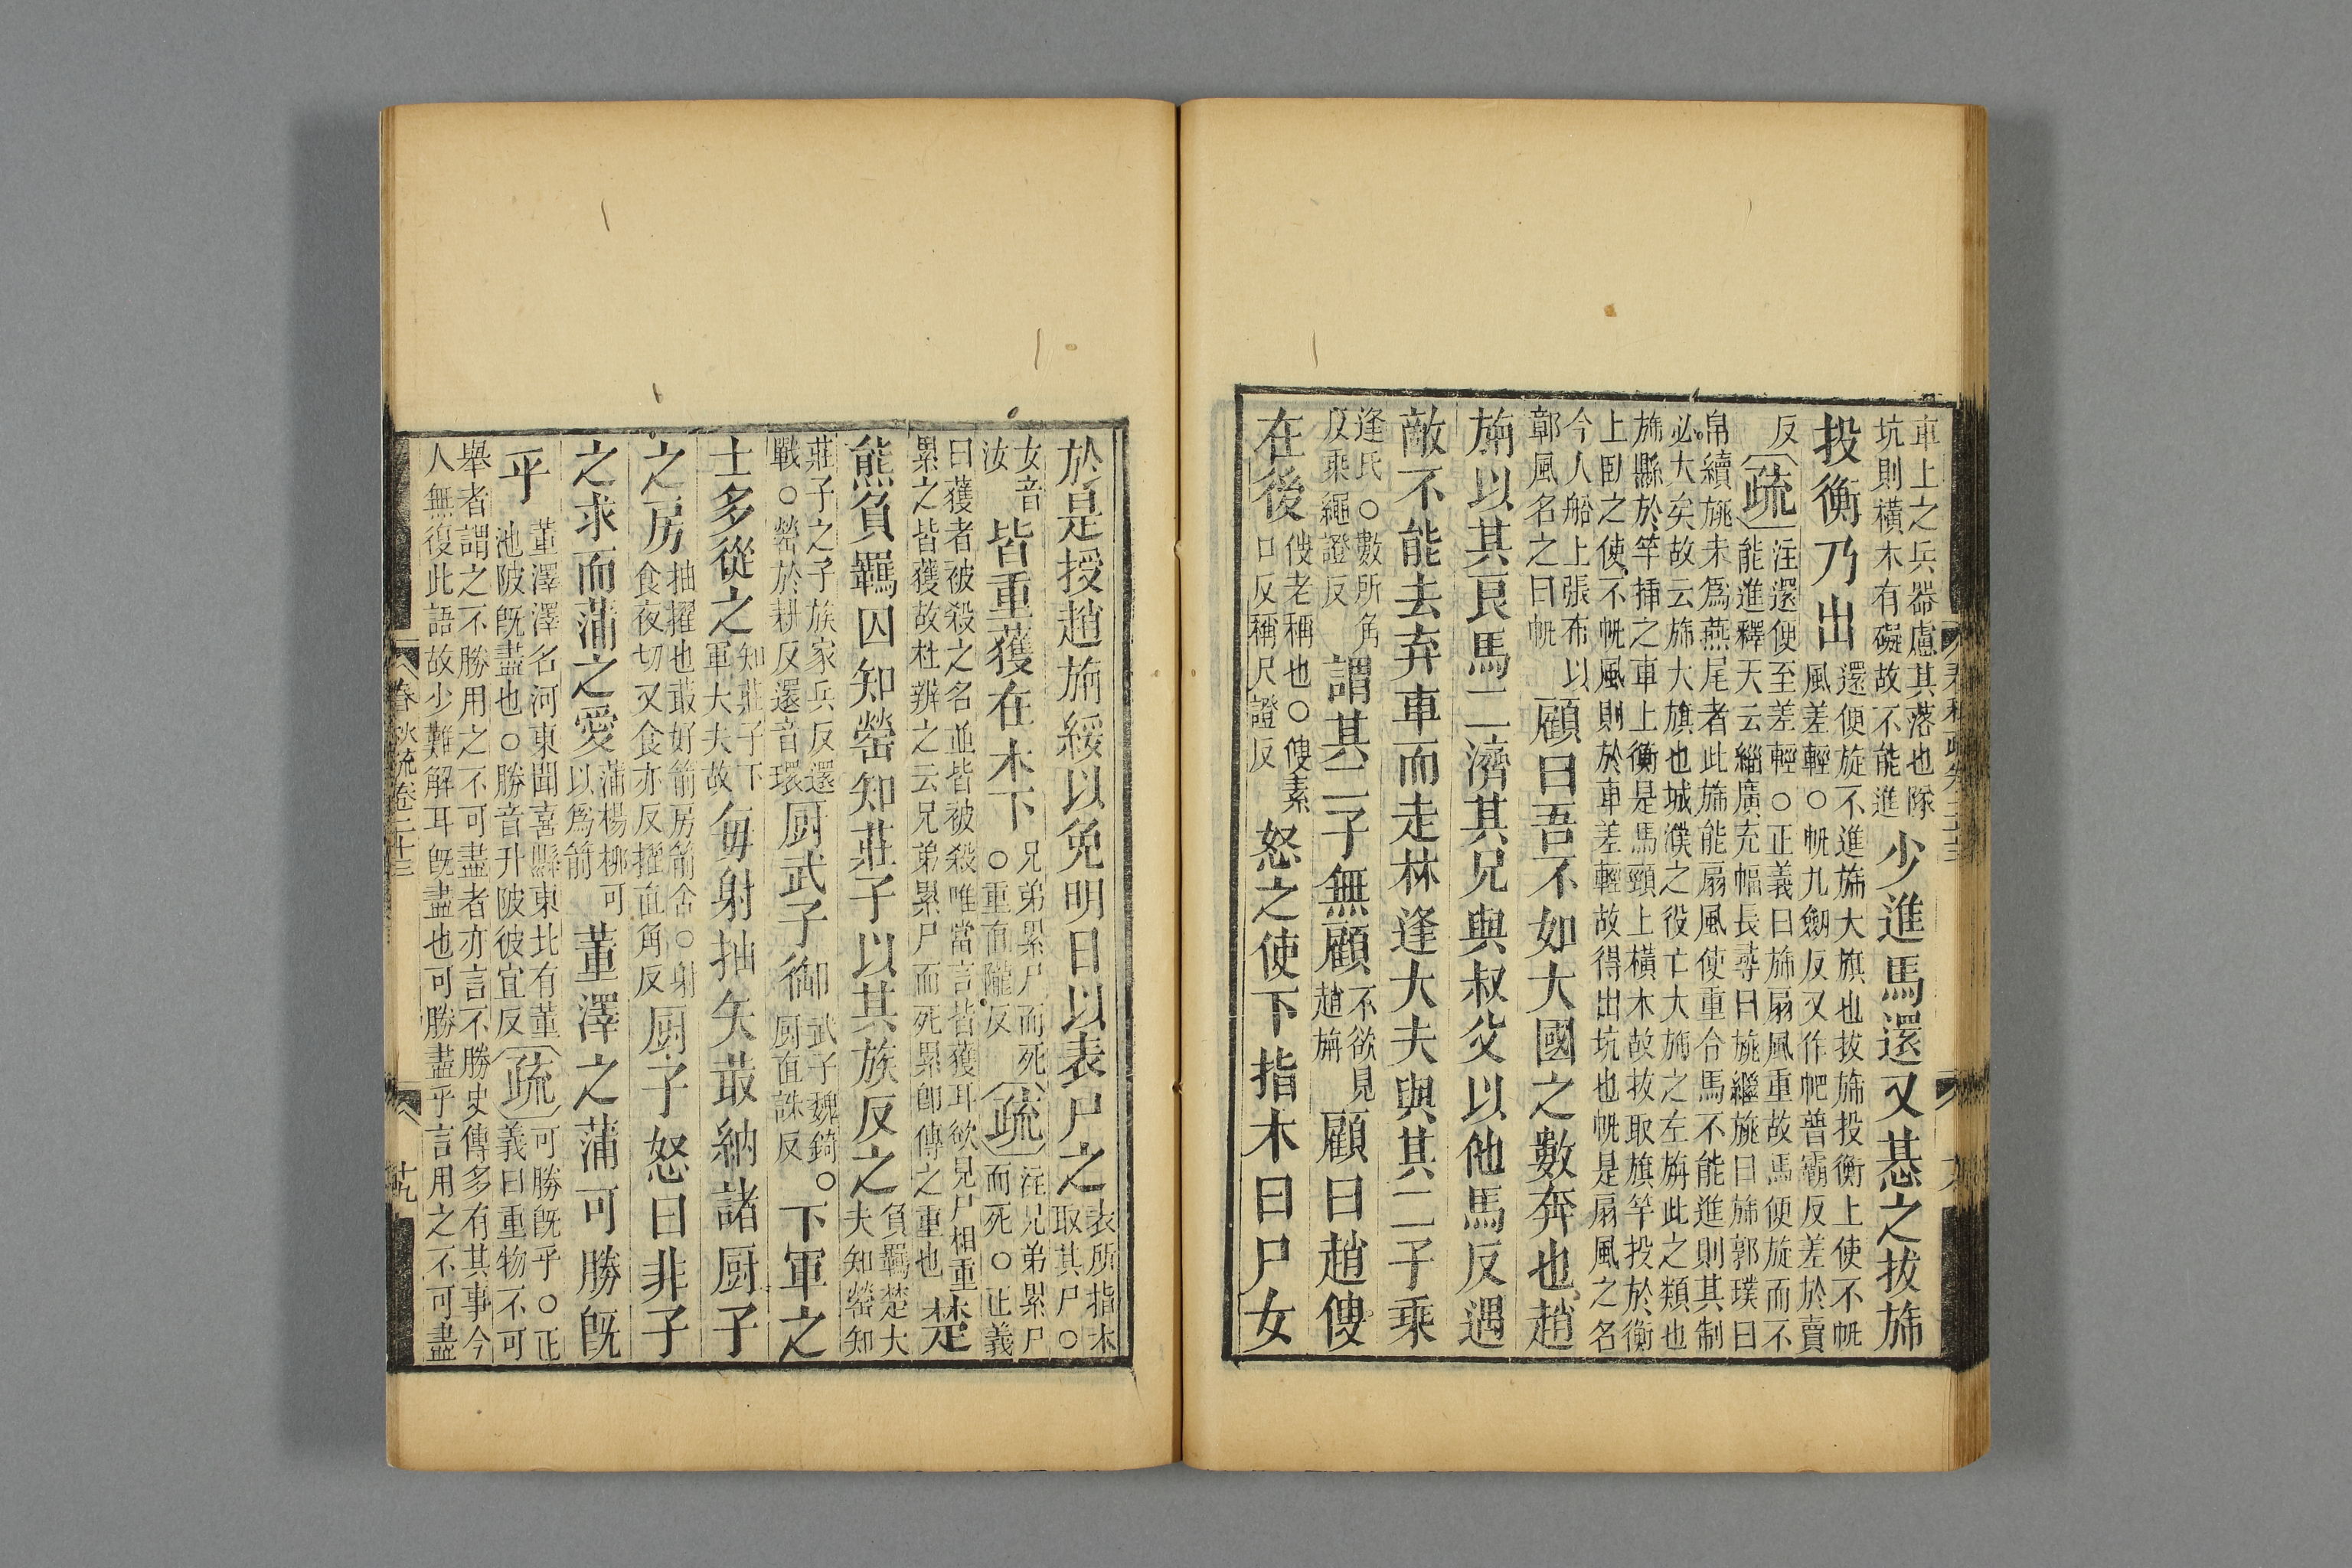 車上之兵器慮其落也隊
坑則橫木有礙故不能進
少進馬還又惎之拔旆
投衡乃出
還便旋不進旆大旗也拔旆投衡上使不帆
風差輕○帆凡劒反又作帊普霸反差於賣
反
疏
注還便至差輕○正義曰旆扇風重故馬便旋而不
能進釋天云緇廣充幅長尋曰旐繼旐曰旆郭璞曰
帛續旐末爲燕尾者此旆能扇風使重合馬不能進則其制
必大矣故云旆大旗也城濮之役亡大旆之左旃此之類也
旆縣於竿揷之車上衡是馬頸上橫木故拔取旗竿投於衡
上臥之使不帆風則於車差輕故得出坑也帆是扇風之名
今人船上張布以
鄣風名之曰帆
顧曰吾不如大國之數奔也趙
旃以其良馬二濟其兄與叔父以他馬反遇
敵不能去弃車而走林逢大夫與其二子乘
逢氏○數所角
反乘繩證反
謂其二子無顧
不欲見
趙旃
顧曰趙傁
在後
傁老稱也○傁素
口反稱尺證反
怒之使下指木曰尸女
於是授趙旃綏以免明日以表尸之
表所指木
取其尸○
女音
汝
皆重獲在木下
兄弟累尸而死
○重直隴反
疏
注兄弟累尸
而死○正義
曰獲者被殺之名並皆被殺唯當言皆獲耳欲見尸相重
累之皆獲故杜辨之云兄弟累尸而死累卽傳之重也
楚
熊負羈囚知罃知莊子以其族反之
負羈楚大
夫知罃知
莊子之子族家兵反還
戰○罃於耕反還音環
厨武子御
武子魏錡
厨直誅反
。下軍之
士多從之
知莊子下
軍大夫故
每射抽矢菆納諸厨子
之房
抽擢也菆好箭房箭舍○射
食夜切又食亦反擢直角反
厨子怒曰非子
之求而蒲之愛
蒲楊柳可
以爲箭
董澤之蒲可勝旣
乎
董澤澤名河東聞喜縣東北有董
池陂旣盡也○勝音升陂彼宜反
疏
可勝旣乎○正
義曰重物不可
舉者謂之不勝用之不可盡者亦言不勝史傳多有其事今
人無復此語故少難解耳旣盡也可勝盡乎言用之不可盡
春秋疏卷二十三
十九